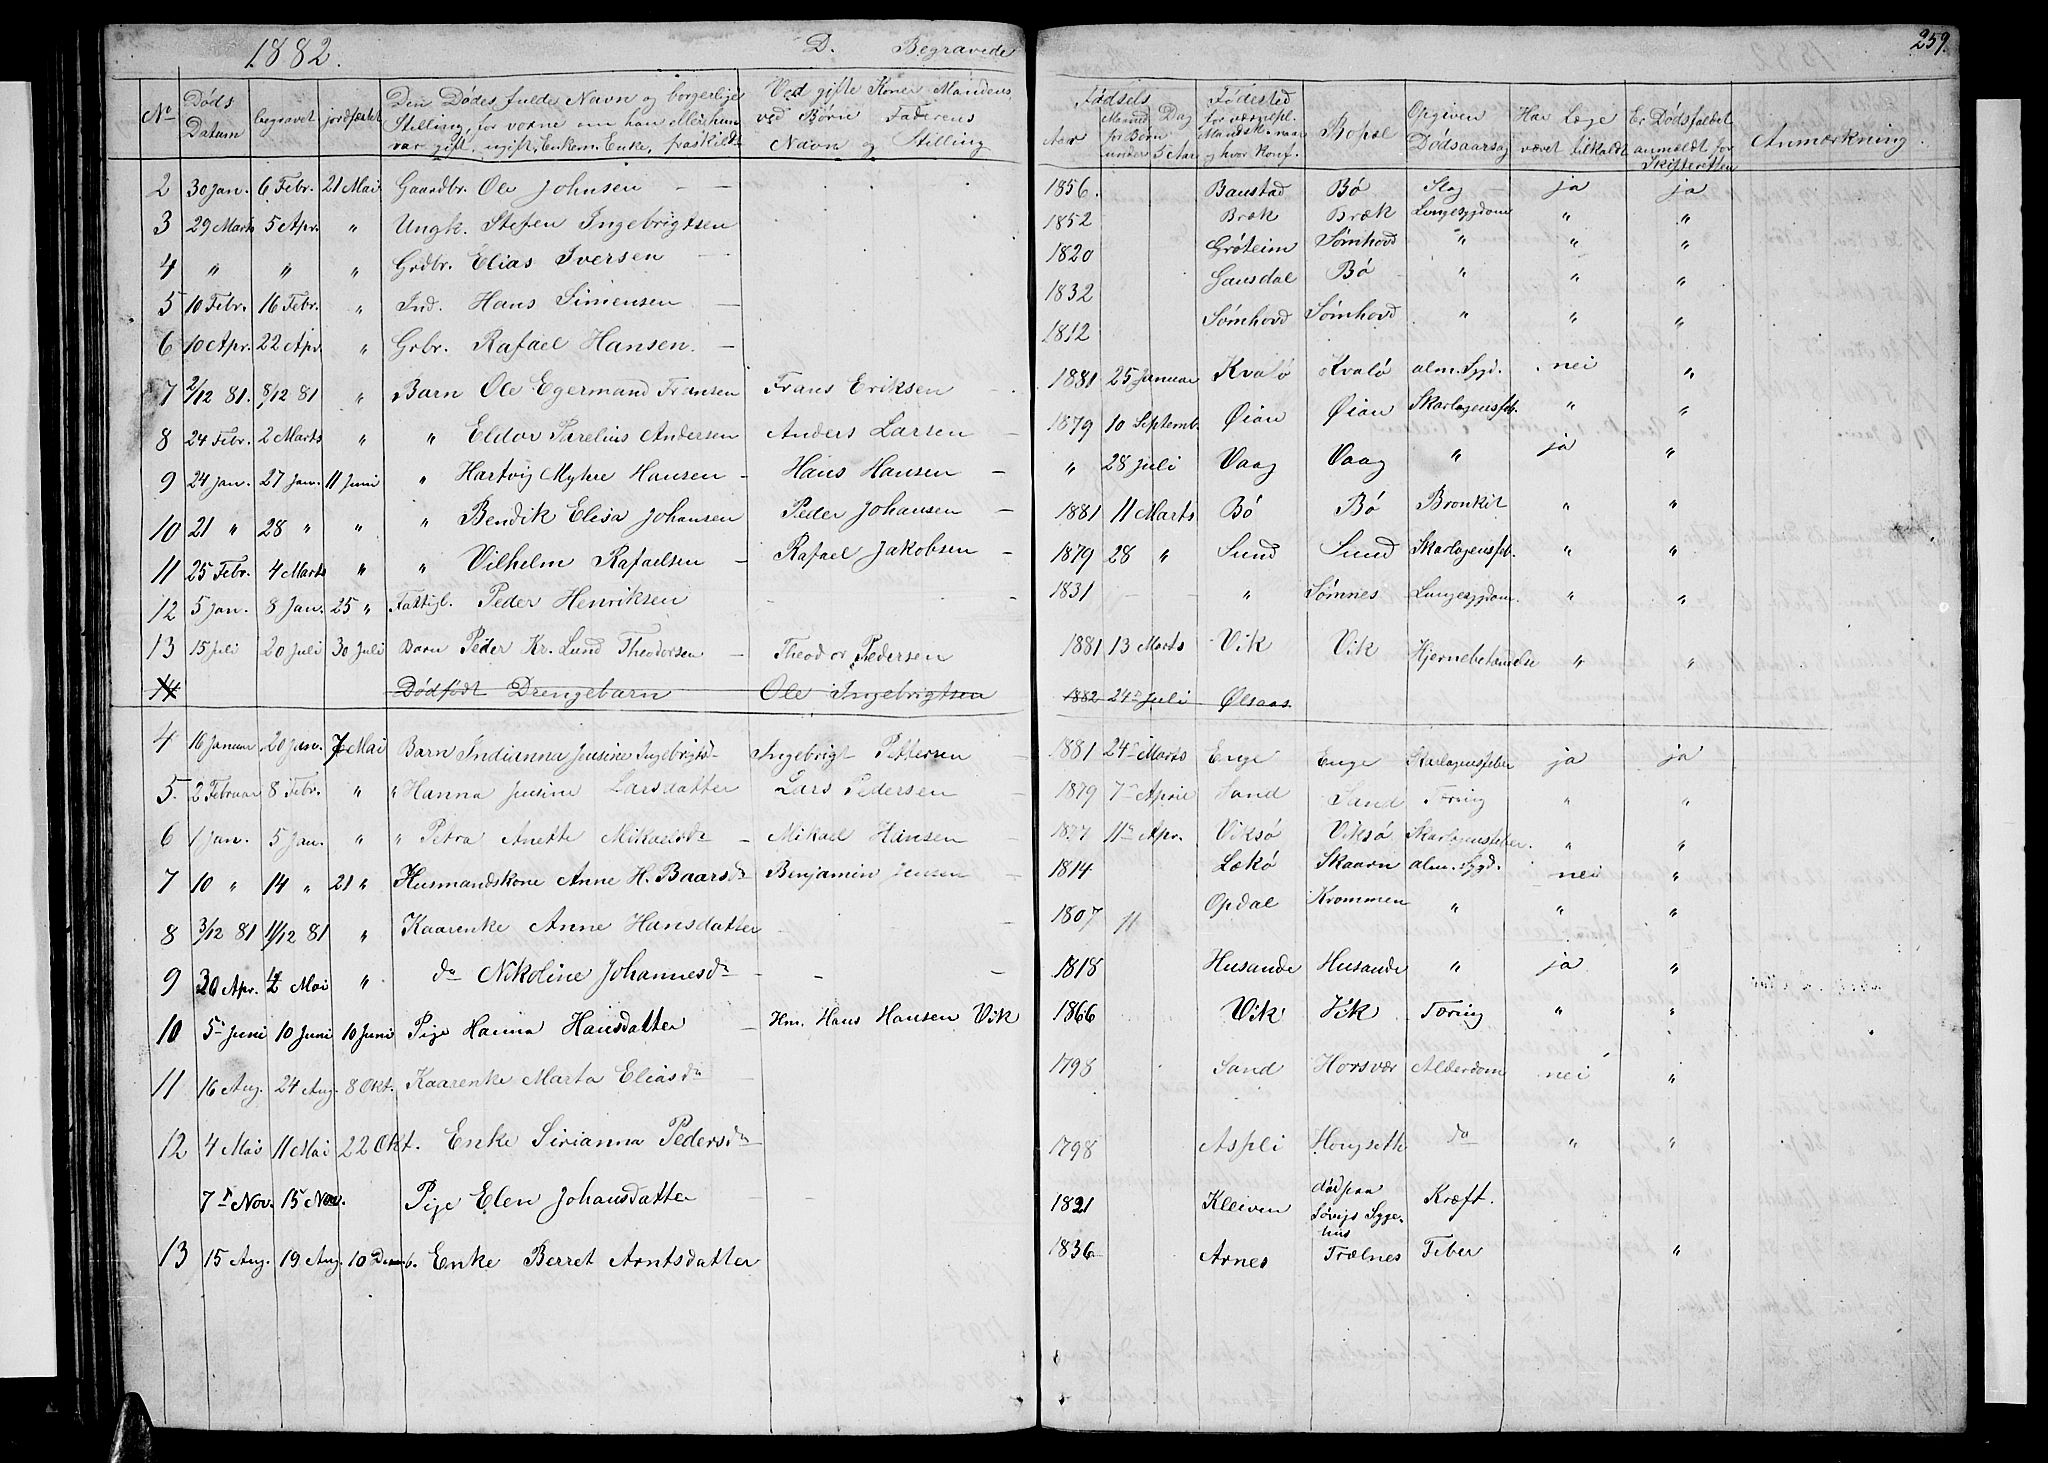 1882. D. Begravede 259.
No Døds Datum begravet jordfæstet Den Dødes fulde Navn og borgerlige Stilling, for voxne om han eller hun var gift, ugift, Enkem. Enke, fraskildt Ved gifte Koner Mandens, ved Børn Faderens Navn og Stilling Fødsels Aar Maaned Dag for Børn under 5 Aar Fødested for værnepl. Mandsk. naar og hvor konf. Bopæl Opgiven Dødsaarsag Har Læge været tilkaldt Er Dødsfaldet anmeldt for Skifteretten Anmærkning
2 30 Jan. 6 Febr. 21 Mai Gaardbr. Ole Johnsen 1856. Baustad Bø Slag ja ja
3 29 Marts 5 Apr. " Ungk. Stefen Ingebrigtsen 1852 Bræk Bræk Lungesygdom " "
4 " " " Grdbr. Elias Iversen 1820 Grøteim Sømhovd " " "
5 10 Febr. 16 Febr. " Ind. Hans Simensen 1832 Gausdal Bø " " "
6 10 Apr. 22 Apr. " Grbr. Rafael Hansen. 1812 Sømhovd Sømhovd " " "
7 2/12 81. 8/12 81 " Barn Ole Egermand Fransen Frans Eriksen 1881 25 Januar Kvalø Kvalø alm. Sygd. nei "
8 24 Febr. 2 Marts " " Eldor Parelius Andersen Anders Larsen 1879 10 Septemb. Øian Øian Skarlagensfeb. " "
9 24 Jan. 27 Jan. 11 Juni " Hartvig Myhre Hansen Hans Hansen " 28 Juli Vaag Vaag " ja "
10 21 " 28 " " " Bendik Elisa Johansen Peder Johansen 1881 11 Marts Bø Bø Bronkit " "
11 25 Febr. 4 Marts " " Vilhelm Rafaelsen Rafael Jakobsen 1879 28 " Sund Sund Skarlagensfeb. " "
12 5 Jan. 8 Jan. 25 " Fattigl. Peder Henriksen 1831 " Sømnes Lungesygdom. " "
13 15 Juli 20 Juli 30 Juli Barn Peder Kr. Lund Theodorsen Theodor Pedersen 1881 13 Marts Vik Vik Hjernebetændelse " "
14 Dødfødt Drengebarn Ole Ingebrigtsen 1882 24 Juli Ølsaas
4 16 Januar 20 Jan. 7 Mai Barn Indianna Jensine Ingebrigtsd. Ingebrigt Pettersen 1881 24 Marts Enge Enge Skarlagensfeber ja ja
5. 2 Februar 8 Febr. " " Hanna Jensine Larsdatter Lars Pedersen 1879 7 April Sand Sand Tæring " "
6 1 Jan. 5 Jan. " " Petra Anette Mikaelsdr Mikael Hansen 1877 11 Apr. Viksø Viksø Skarlagensfeber. " "
7 10 " 14 " 21 " Husmandskone Anne H. Baarsdr Benjamin Jensen 1814 Lekø Skaarn alm. Sygd. nei "
8 3/12 81 11/12 81 " Kaarenke Anne Hansdatter 1807 11 Opdal Krommen " " "
9 30 Apr. 12 Mai " do Nikoline Johannesdr 1818 Husande Husande " ja "
10 5 Juni 10 Juni 10 Juni Pige Hanna Hansdatter Hm. Hans Hansen Vik 1866 Vik Vik Tæring " "
11 16 Aug. 24 Aug. 8 Okt. Kaarenke Marta Eliasdr 1798 Sand Horsvær Alderdom nei "
12 4 Mai 11 Mai 22 Okt. Enke Sirianna Pedersdr 1798 Aspli Hongsette do " "
7 Nov. 15 Nov. Pige Elen Johansdatter 1821 Kleiven død paa Søvigs Sygehus Kræft.
13 15 Aug. 19 Aug. 10 Decemb. Enke Berret Arntsdatter 1836 Arnes Trælnes Feber "